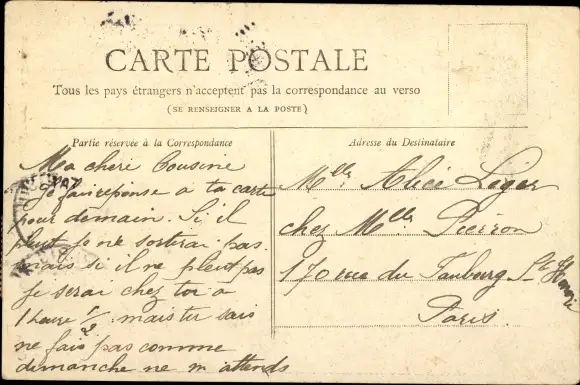 CARTE POSTALE
Tous les pays étrangers n'acceptent pas la correspondance au verso
(SE RENSEIGNER A LA POSTE)
Partie réservée à la Correspondance
Ma cheri Cousine
Je fai reponse a ta carte
pour demain. Si il
pleut je ne sortirai pas.
mais si il ne pleut pas
je serai chez toi a
1 heure 1/2 mais tu sais
ne fais pas comme
dimanche ne m'attends
Adresse du Destinataire
Melle Léger
chez Melle Pierron
170 rue du Faubourg St Honoré
Paris.